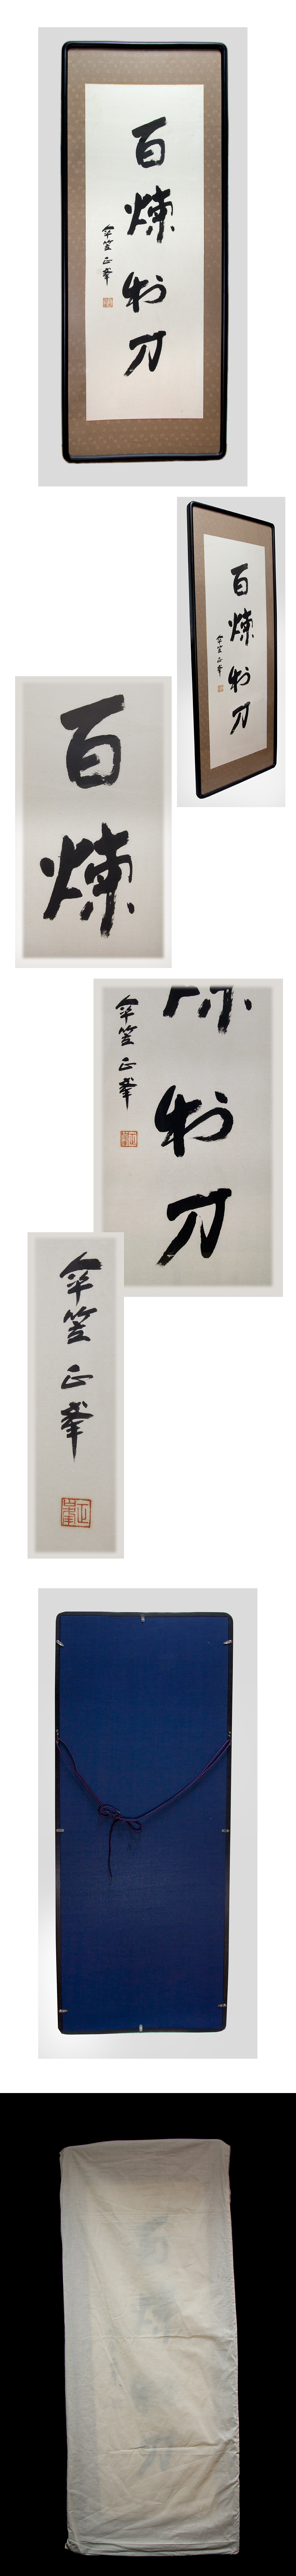 百煉刀
傘笠正峯
百煉刀
傘笠正峯
百煉
刀
傘笠正峯
傘笠正峯
正峯